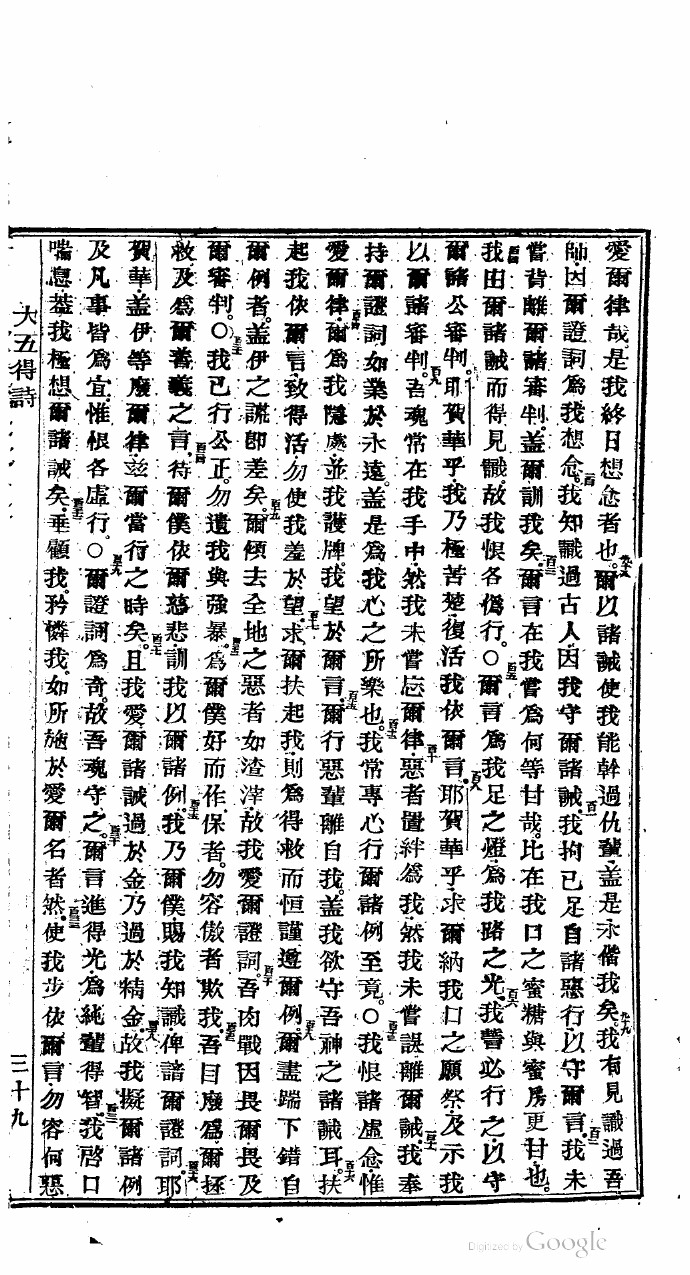 愛爾律哉是我終日想念者也。爾以諸誡使我能幹過仇輩蓋是永偕我矣我有見識過吾
師因爾證詞為我想念。我知識過古人因我守爾諸誡。我拘己足自諸惡行以守爾言。我未
嘗背離爾諸審判。蓋爾訓我矣。爾言在我嘗為何等甘哉。比在我口之蜜糖與蜜房更甘也。
我由爾諸誡而得見識。故我恨各僞行。〇爾言為我足之燈為我路之光。我誓必行之以守
爾諸公審判。耶賀華乎。我乃極苦楚復活我依爾言。耶賀華乎求爾納我口之願祭及示我
以爾諸審判。吾魂常在我手中。然我未嘗忘爾律。惡者置絆為我。然我未嘗誤離爾誡。我奉
持爾證詞如業於永遠。蓋是為我心之所樂也。我常專心行爾諸例至竟。〇我恨諸虛念惟
愛爾律。爾為我隱處並我護牌。我望於爾言。爾行惡輩離自我。蓋我欲守吾神之諸誡耳。扶
起我依爾言致得活。勿使我羞於望。求爾扶起我。則為得救而恒謹遵爾例。爾盡踹下錯自
爾例者。蓋伊之謊卽差矣。爾傾去全地之惡者如渣滓。故我愛爾證詞。吾肉戰因畏爾畏及
爾審判。〇我已行公正。勿遺我與強暴。為爾僕好而作保者。勿容傲者欺我。吾目廢為爾拯
救及為爾善義之言。待爾僕依爾慈悲訓我以爾諸例。我乃爾僕賜我知識俾諳爾證詞。耶
賀華蓋伊等廢爾律。玆爾當行之時矣。且我愛爾諸誡過於金乃過於精金。故我擬爾諸例
及凡事皆為宜。惟恨各虛行。〇爾證詞為奇。故吾魂守之。爾言進得光。為純輩得智。我啓口
喘息。葢我極想爾諸誡矣。垂顧我。矜憐我。如所施於愛爾名者然。使我步依爾言勿容何惡
大五得詩
三十九
Digitized by Google